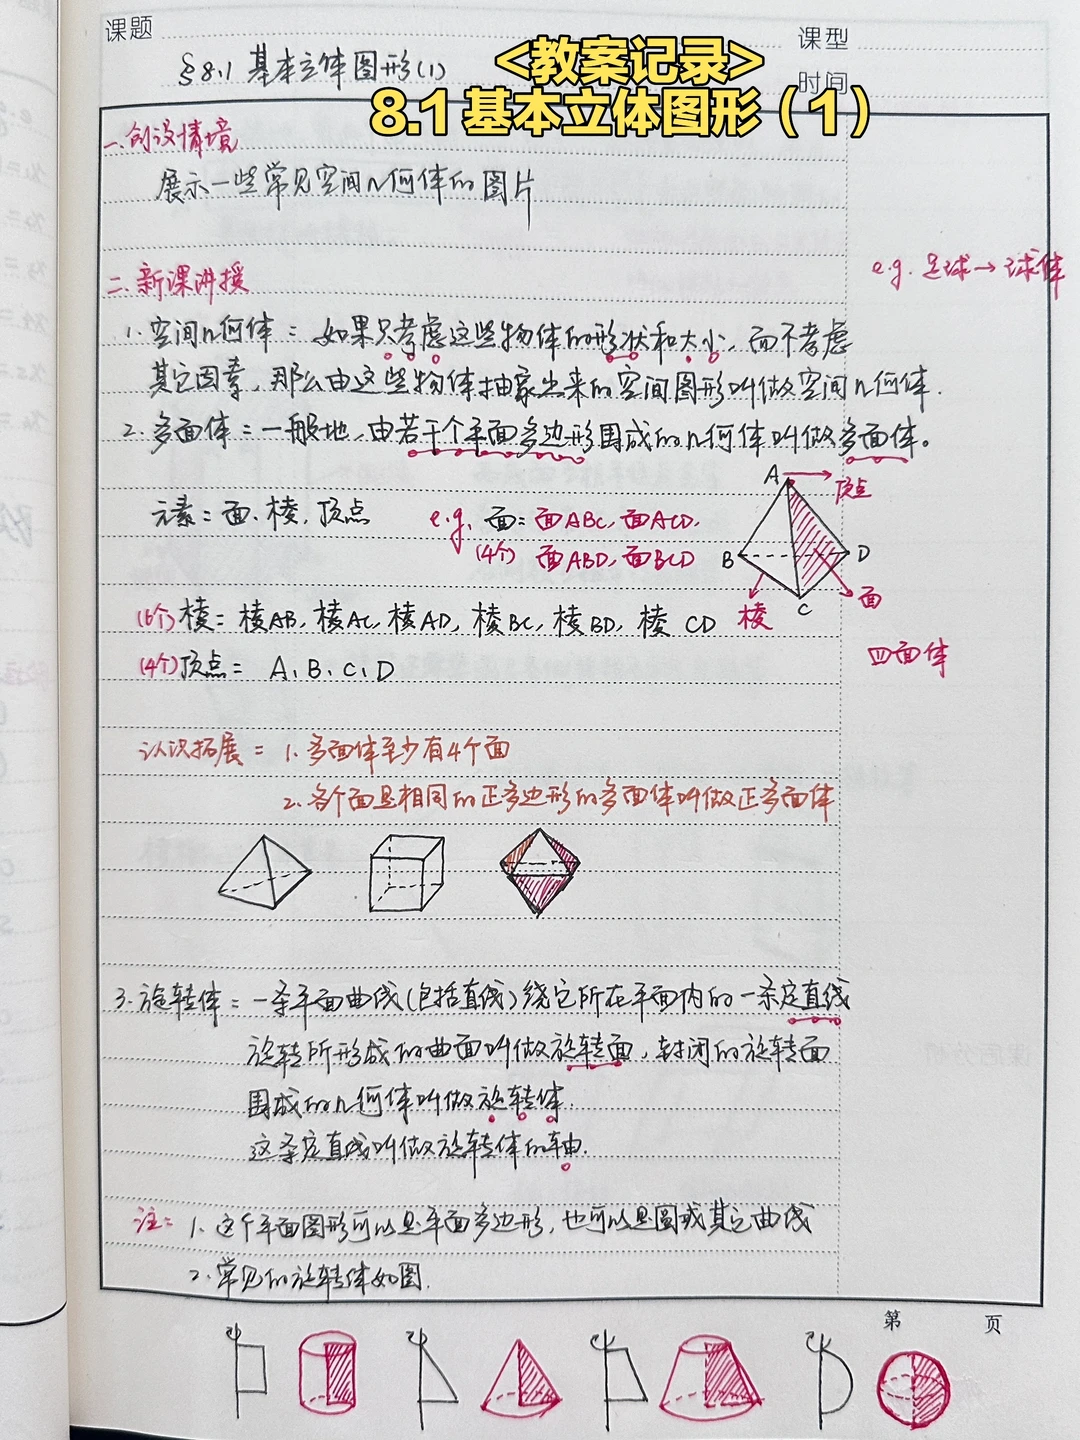 课题
课型
<教案记录>
§8.1 基本立体图形(1)
时间
8.1基本立体图形（1）
一.创设情境
展示一些常见空间几何体的图片
e.g. 足球→球体
二.新课讲授
1.空间几何体：如果只考虑这些物体的形状和大小，而不考虑
其它因素，那么由这些物体抽象出来的空间图形叫做空间几何体.
2.多面体：一般地，由若干个平面多边形围成的几何体叫做多面体。
A
顶点
元素：面、棱、顶点
e.g. 面：面ABC，面ACD，
(4个) 面ABD，面BCD
B
D
C
面
棱
(6个)棱：棱AB，棱AC，棱AD，棱BC，棱BD，棱CD
四面体
(4个)顶点：A、B、C、D
认识拓展：1.多面体至少有4个面
2.各个面是相同的正多边形的多面体叫做正多面体
3.旋转体：一条平面曲线(包括直线)绕它所在平面内的一条定直线
旋转所形成的曲面叫做旋转面，封闭的旋转面
围成的几何体叫做旋转体.
这条定直线叫做旋转体的轴.
注：1.这个平面图形可以是平面多边形，也可以是圆或其它曲线
2.常见的旋转体如图.
第 页